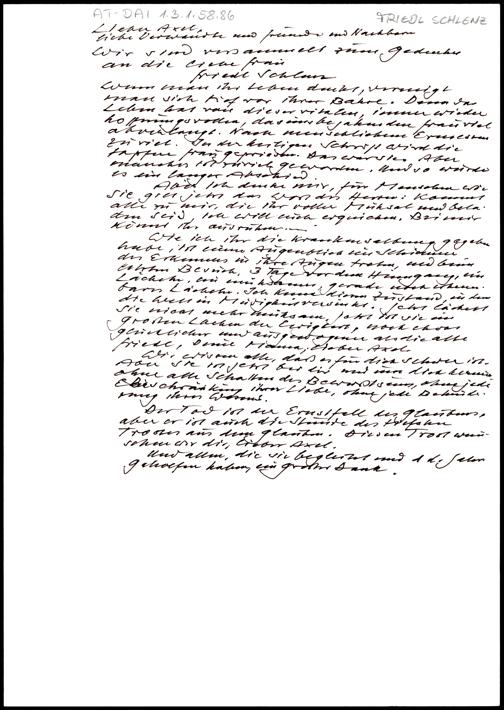 AT-DAI 1.3.1.58.86
FRIEDL SCHLENZ
Lieber Axel,
liebe Verwandte und Freunde und Nachbarn
Wir sind versammelt zum Gedenken
an die liebe Frau
Friedl Schlenz
Wenn man ihr Leben denkt, verneigt
man sich tief vor ihrer Bahre. Denn das
Leben hat von dieser vitalen, immer wieder
hoffnungsvollen, das uns bejahenden Frau viel
abverlangt. Nach menschlichem Ermessen
zuviel. In der heiligen Schrift wird die
tapfere Frau gepriesen. Das war sie. Aber
manches ist durch geworden. Und so wurde
es ein langer Abschied.
Aber ich denke mir, für Menschen wie
sie gilt jetzt das Wort des Herrn: Kommt
alle zu mir, die ihr voller Mühsal und bela-
den seid, ich will euch erquicken. Bei mir
könnt ihr ausruhen.
Wie ich ihr die Krankensalbung gegeben
habe, ist einen Augenblick ein Schimmer
des Erkennens in ihre Augen getreten, und beim
letzten Besuch, 3 Tage vor dem Heimgang, ein
Lächeln, ein mühsames, gerade noch erkenn-
bares Lächeln. Ich kenne diesen Zustand, in dem
die Welt in Müdigkeit versinkt. Jetzt lächelt
sie nicht mehr mühsam, jetzt ist sie im
großen Lachen der Ewigkeit, noch etwas
glücklicher und ausgewogener als die alte
Friedl, Deine Mama, lieber Axel
Wir wissen alle, daß es für dich schwer ist.
Aber sie ist jetzt bei dir und um dich herum
ohne alle Schatten des Bewusstseins, ohne jede
Beschränkung ihrer Liebe, ohne jede Behinde-
rung ihres Wesens.
Der Tod ist der Ernstfall des Glaubens,
aber er ist auch die Stunde des tiefsten
Trostes aus dem Glauben. Diesen Trost wün-
schen wir dir, lieber Axel.
Und allen, die sie begleitet und d. d. Jahre
geholfen haben, ein großer Dank.